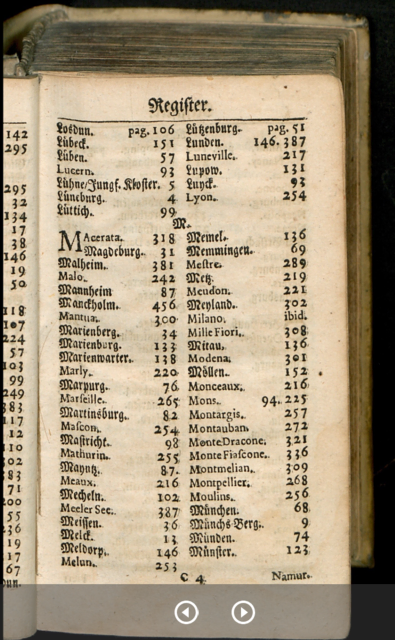 Register.
Losdun. pag. 106
Lübeck. 151
Lüben. 57
Lucern. 93
Lühne/Jungf. Kloster. 5
Lüneburg. 4
Lüttich. 99
Lützenburg. pag. 51
Lunden. 146. 387
Luneville. 217
Lupow. 131
Luyck. 93
Lyon. 254
M.
MAcerata. 318
Magdeburg. 31
Malheim. 381
Malo. 242
Mannheim 87
Manckholm. 456
Mantua. 300
Marienberg. 34
Marienburg. 133
Marienwarter. 138
Marly. 220
Marpurg. 76
Marseille. 265
Martinsburg. 82
Mascon. 254
Mastricht. 98
Mathurin. 255
Mayntz. 87.
Meaux. 216
Mecheln. 102
Meeler See. 387
Meissen. 36
Melck. 13
Meldorp. 146
Melun. 253
Memel. 136
Memmingen. 69
Mestre. 289
Metz. 219
Meudon. 221
Meyland. 302
Milano. ibid.
Mille Fiori. 308
Mitau. 136
Modena. 301
Möllen. 152
Monceaux. 216
Mons. 94. 225
Montargis. 257
Montauban. 272
Monte Dracone. 321
Monte Fiascone. 336
Montmelian. 309
Montpellier. 268
Moulins. 256
München. 68
Münchs-Berg. 9
Münden. 74
Münster. 123
C 4
Namur.
142
295
295
32
134
17
38
146
19
50
118
107
224
57
103
99
249
383
117
12
110
102
83
71
200
55
236
19
17
67